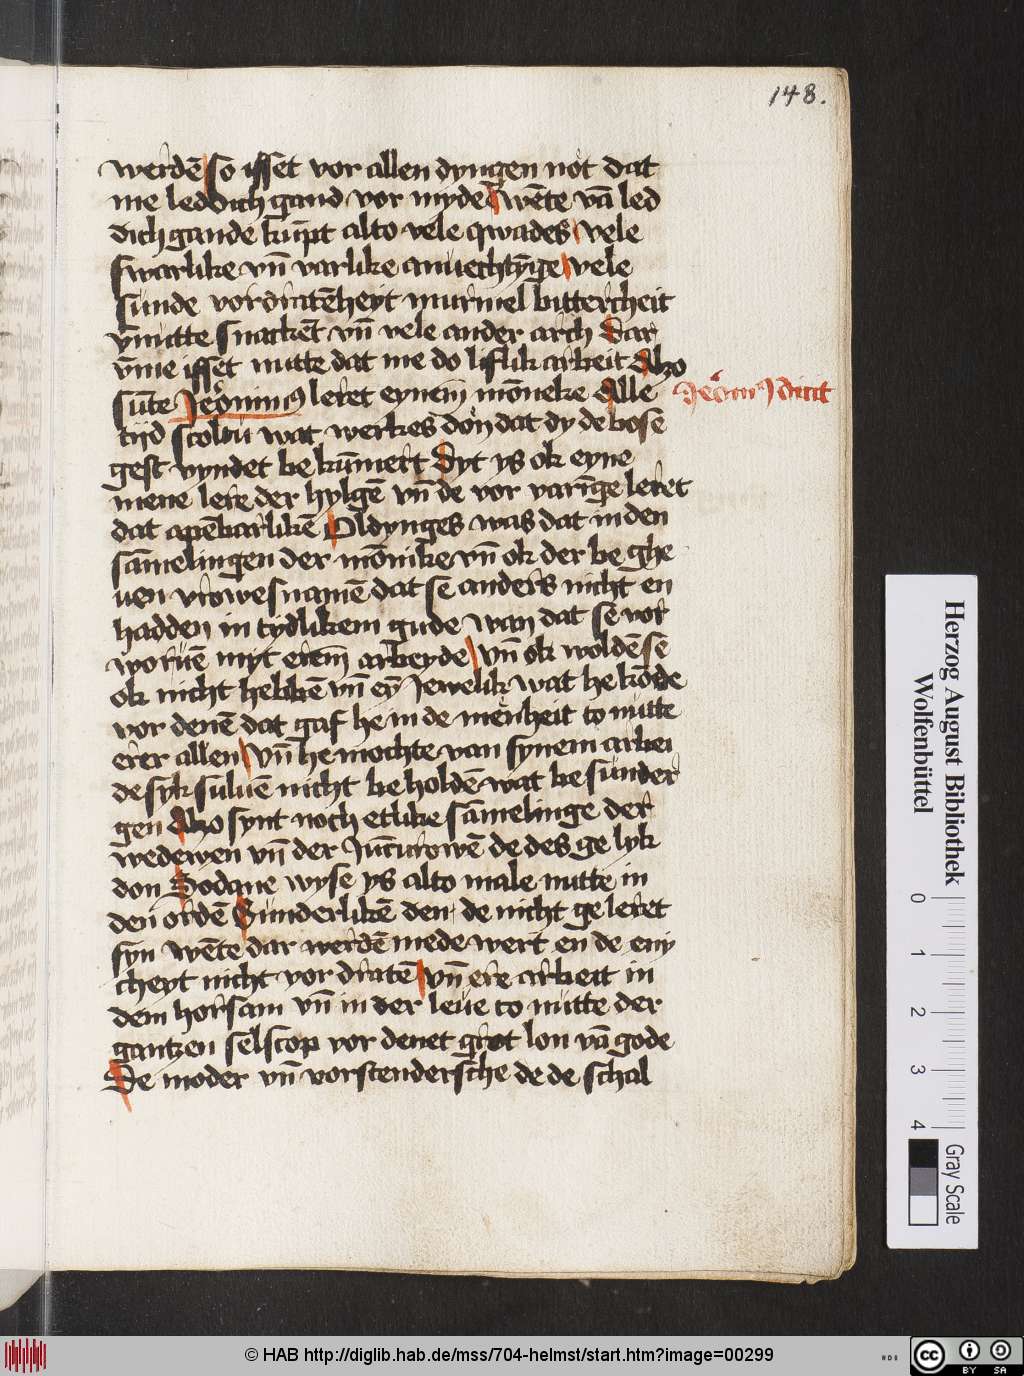 148.
werdē so isset vor allen dyngen not dat
me leddich gand vor myde wēte vā led
dich gande kūpt alto vele qwades vele
swarlike vn̄ varlike anuechtȳge vele
sunde vordratēheyt murmel bittercheit
vn̄nutte snackēt vn̄ vele ander arch Dar
v̄me isset nutte dat me do liflik arbeit Alzo
sūte Jeronim9 leret eynem mōneke Alle
Jero dicit
tijd scoltu wat werkes don dat dy de bose
gest vyndet be kūmert Dyt ys ok eyne
mene lere der hylgē vn̄ de vor varīge leret
dat apēbarlikē Oldynges was dat in den
sāmelingen der mōnike vn̄ ok der be ghe
uen vrowes namē dat se anders nicht en
hadden in tydlikem gude wan dat se vor
woruē myt erem arbeyde vn̄ ok woldē se
ok nicht hebbē vn̄ eȳ Jewelik wat he kōde
vor denē dat gaf he in de menheit to nutte
erer allen vn̄ he mochte van synem arbei
de syk suluē nicht be holdē wat be sunder
gen Alzo synt noch etlike sāmelinge der
wedewen vn̄ der Jūcurowē de des ge lyk
don Sodane wyse ys alto male nutte in
den ordē Sunderlikē den de nicht ge leret
syn wēte dar werdē mede wert en de eni
cheyt nicht vor dratē vn̄ ere arbeit in
dem horsam vn̄ in der leue to nutte der
gantzen selscop vor denet grot lon vā gode
De moder vn̄ vorstendersche de de schal
Herzog August Bibliothek
Wolfenbüttel
0
1
2
3
4
Gray Scale
© HAB http://diglib.hab.de/mss/704-helmst/start.htm?image=00299
HAB
cc BY SA